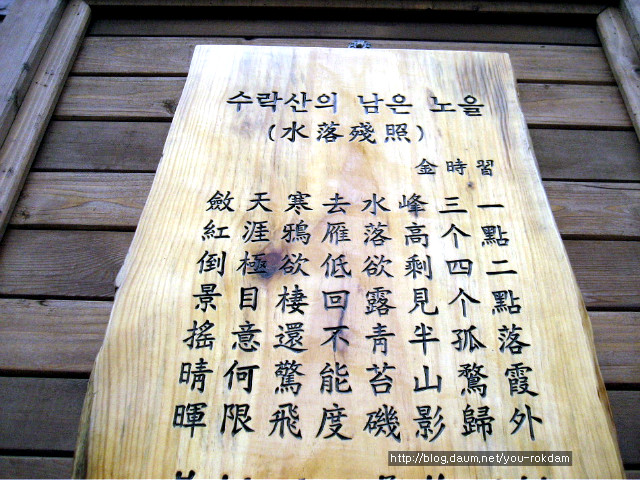 수락산의 남은 노을
(水落殘照)
金時習
一點二點落霞外
三个四个孤鶩歸
峰高剩見半山影
水落欲露靑苔磯
去雁低回不能度
寒鴉欲棲還驚飛
天涯極目意何限
斂紅倒景搖晴暉
http://blog.daum.net/you-rokdam